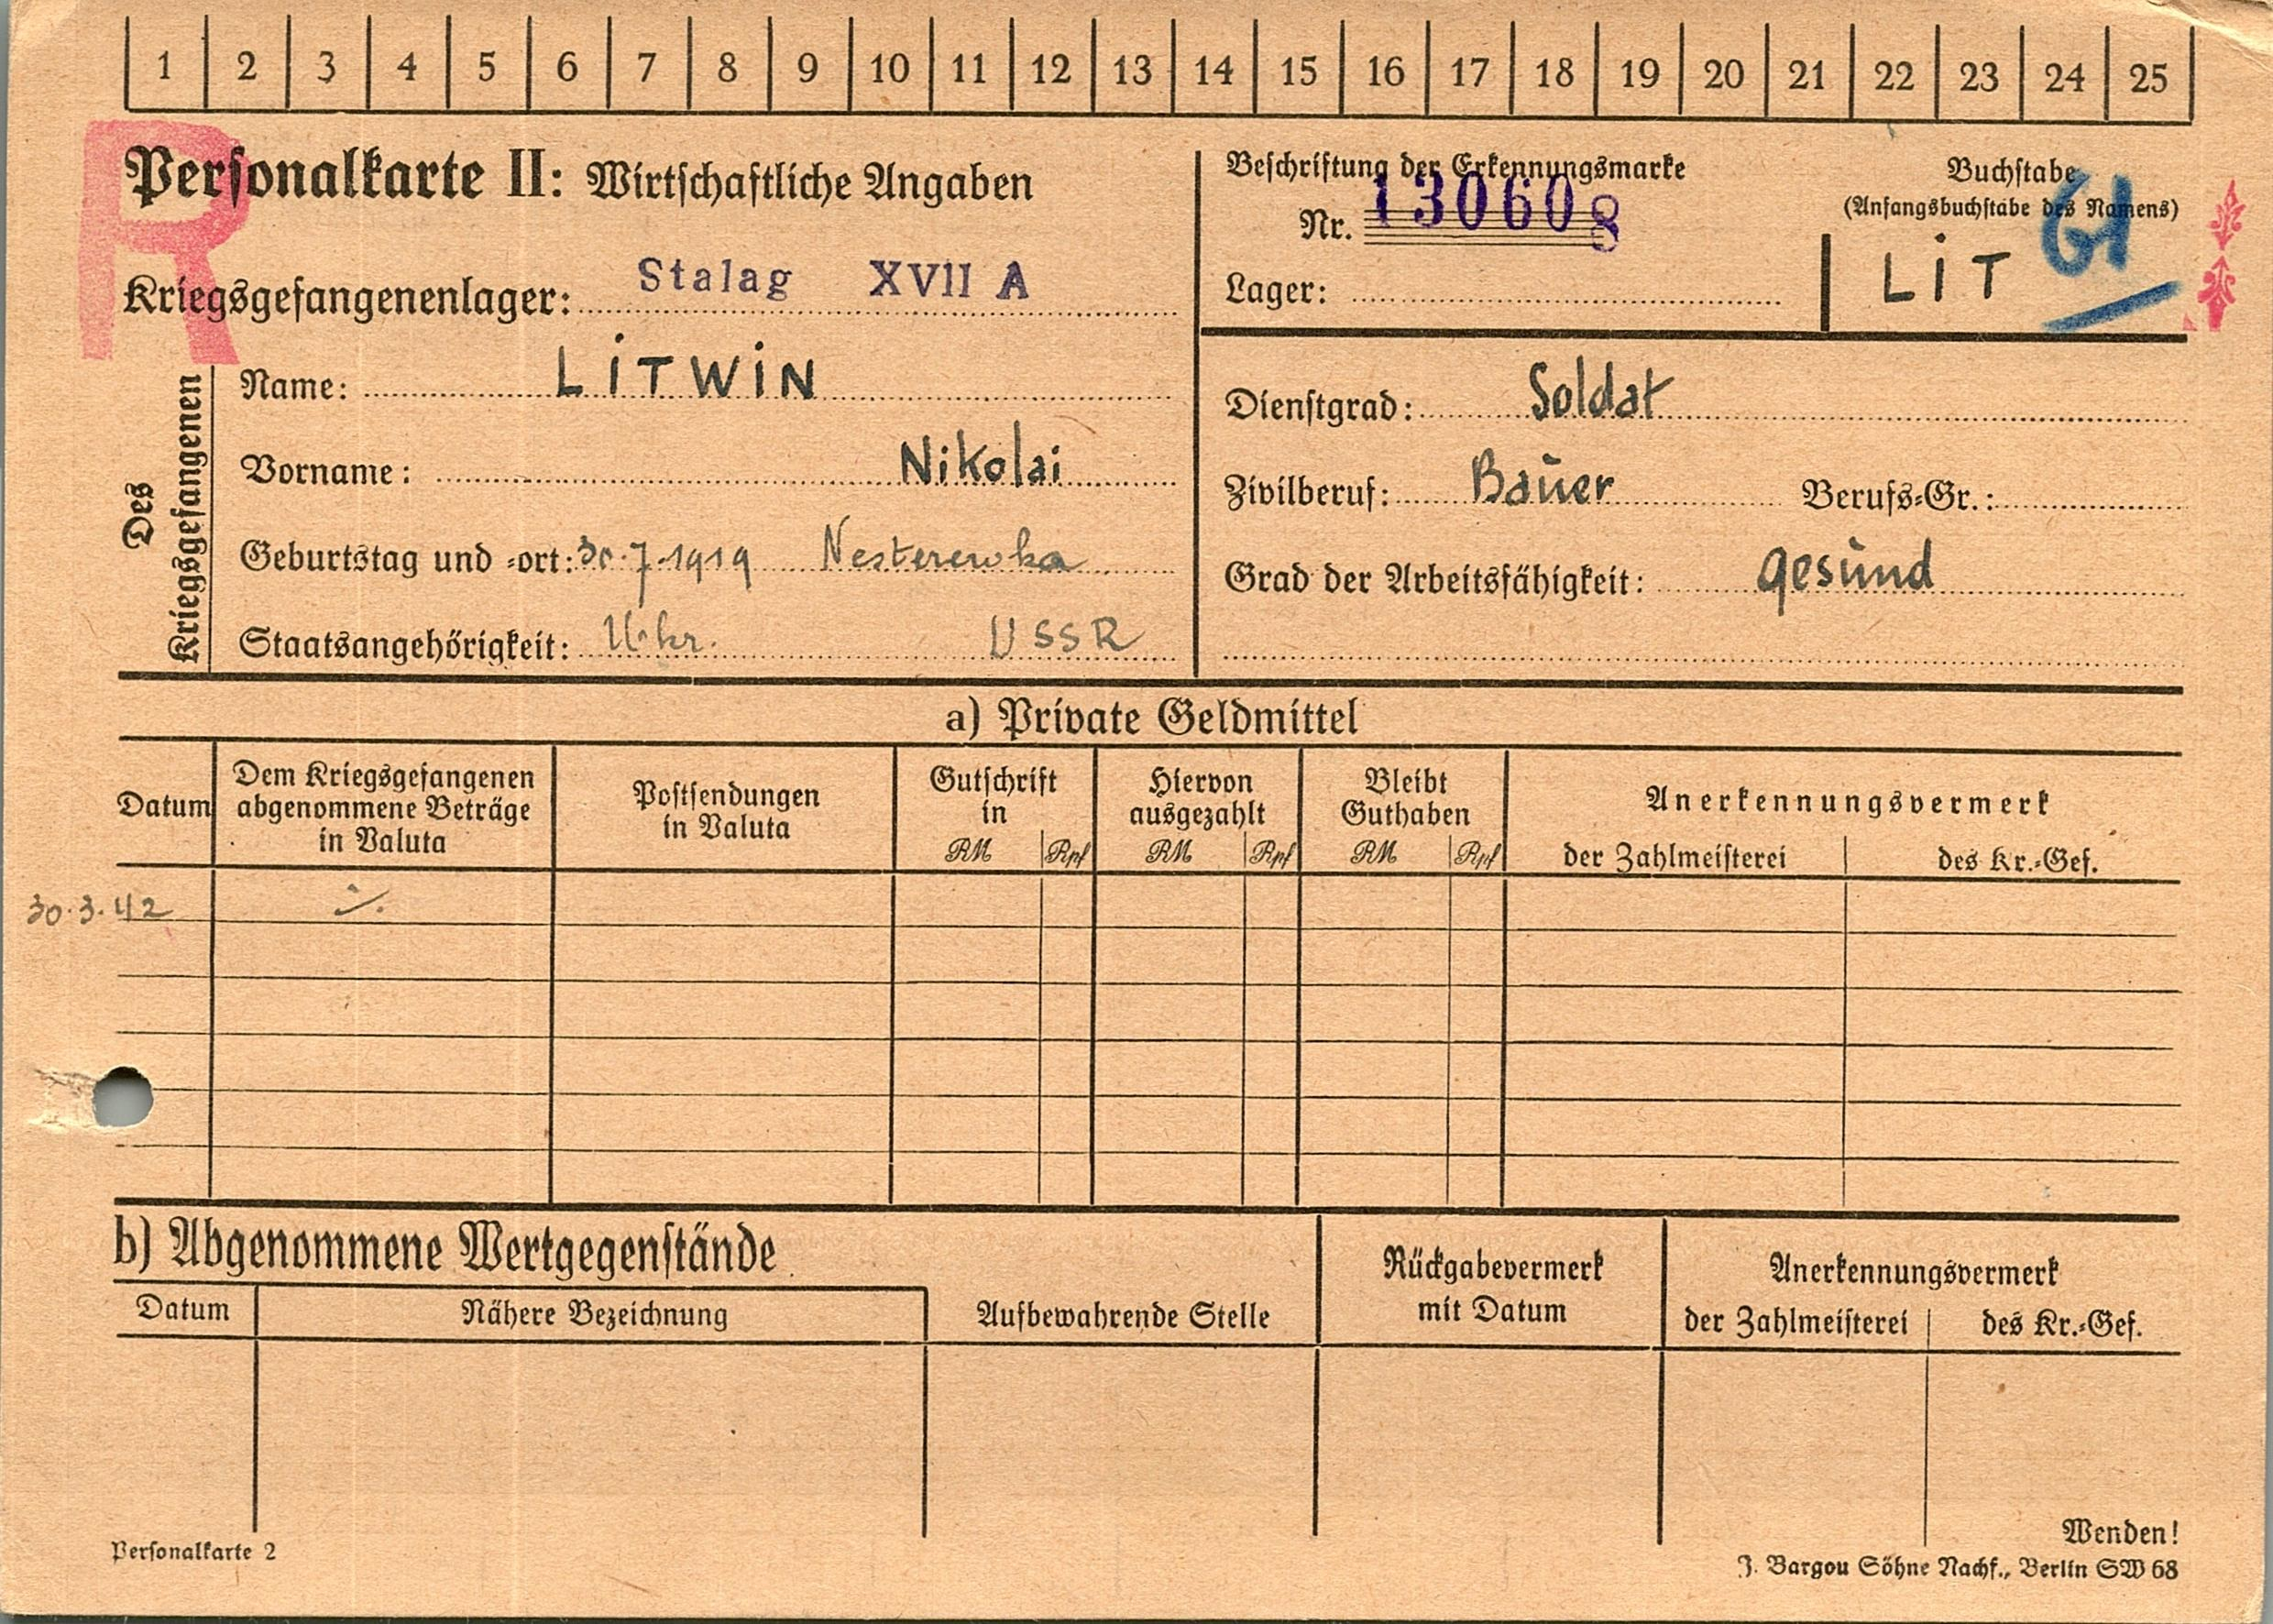 1 2 3 4 5 6 7 8 9 10 11 12 13 14 15 16 17 18 19 20 21 22 23 24 25
R
Personalkarte II: Wirtschaftliche Angaben
Kriegsgefangenenlager: Stalag XVII A
Beschriftung der Erkennungsmarke
Nr. 130608
Lager:
Buchstabe
(Anfangsbuchstabe des Namens)
LIT
61
Des
Kriegsgefangenen
Name: LITWIN
Vorname: Nikolai
Geburtstag und -ort: 30.7.1919 Nesterewka
Staatsangehörigkeit: Ukr. USSR
Dienstgrad: Soldat
Zivilberuf: Bauer Berufs-Gr.:
Grad der Arbeitsfähigkeit: gesund
a) Private Geldmittel
Datum
Dem Kriegsgefangenen
abgenommene Beträge
in Valuta
Postsendungen
in Valuta
Gutschrift
in
RM Rpf
Hiervon
ausgezahlt
RM Rpf
Bleibt
Guthaben
RM Rpf
Anerkennungsvermerk
der Zahlmeisterei des Kr.-Gef.
30.3.42
b) Abgenommene Wertgegenstände
Datum
Nähere Bezeichnung
Aufbewahrende Stelle
Rückgabevermerk
mit Datum
Anerkennungsvermerk
der Zahlmeisterei des Kr.-Gef.
Wenden!
Personalkarte 2
J. Bargou Söhne Nachf., Berlin SW 68